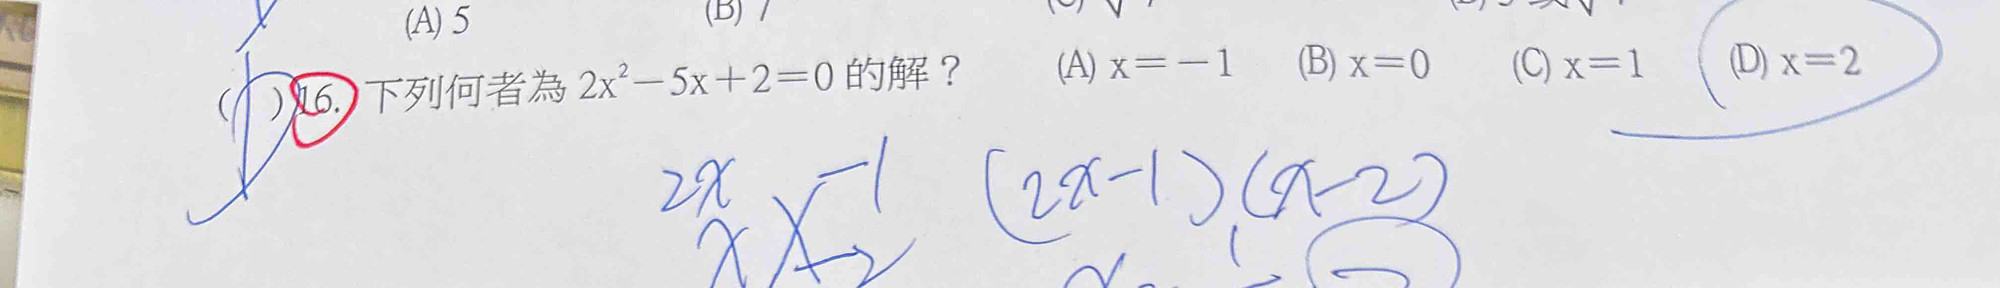 (A) 5
(D) 16. 下列何者為 2x²－5x＋2＝0 的解？ (A) x＝－1 (B) x＝0 (C) x＝1 (D) x＝2
2x -1 (2x-1)(x-2)
x -2